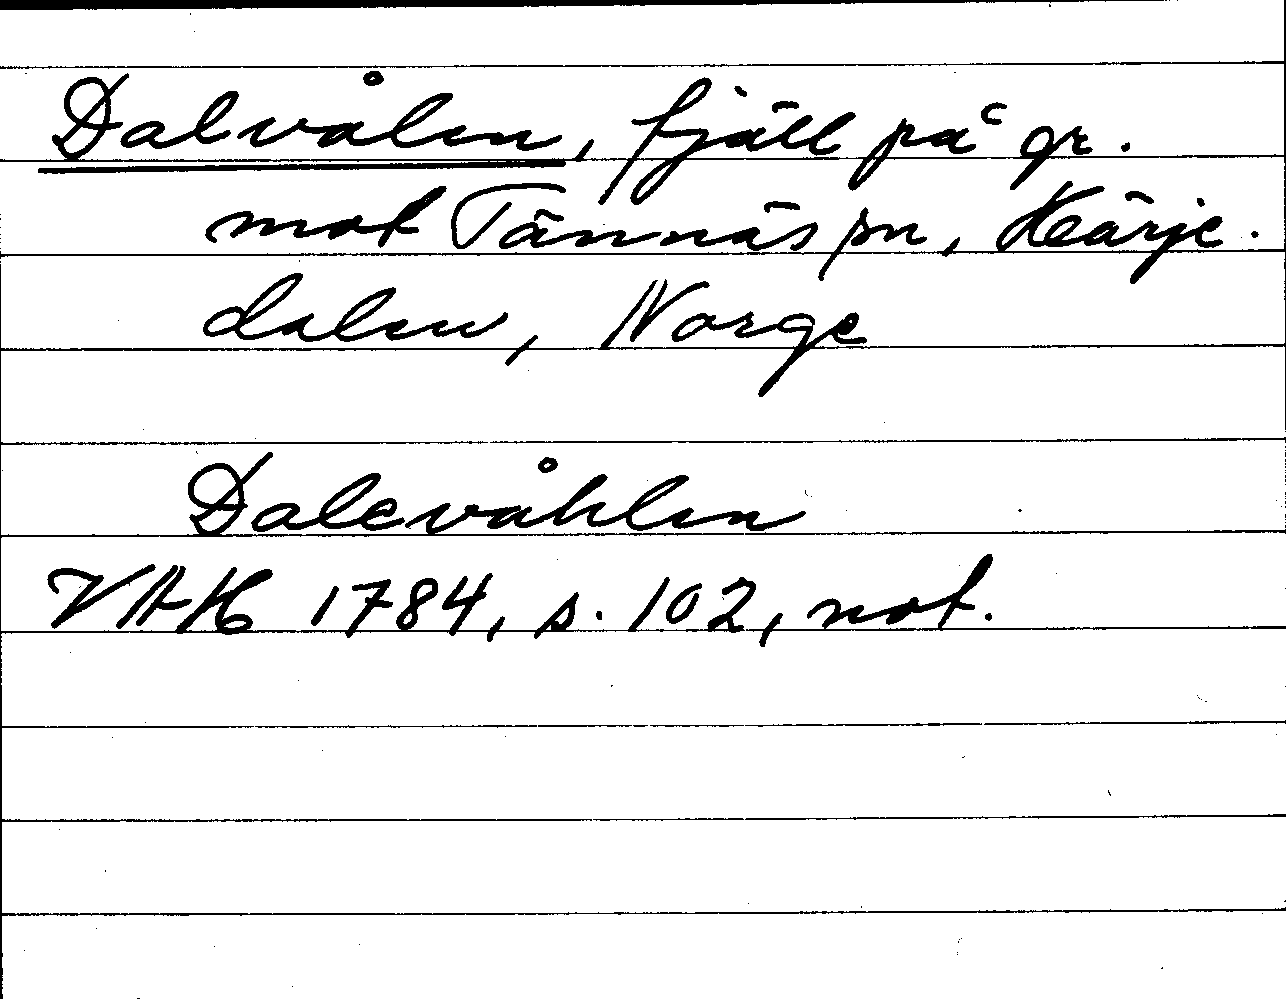 Dalvålen, fjäll på gr.
mot Tännäs sn, Härje.
dalen, Norge
Dalevåhlen
VAH 1784, s. 102, not.